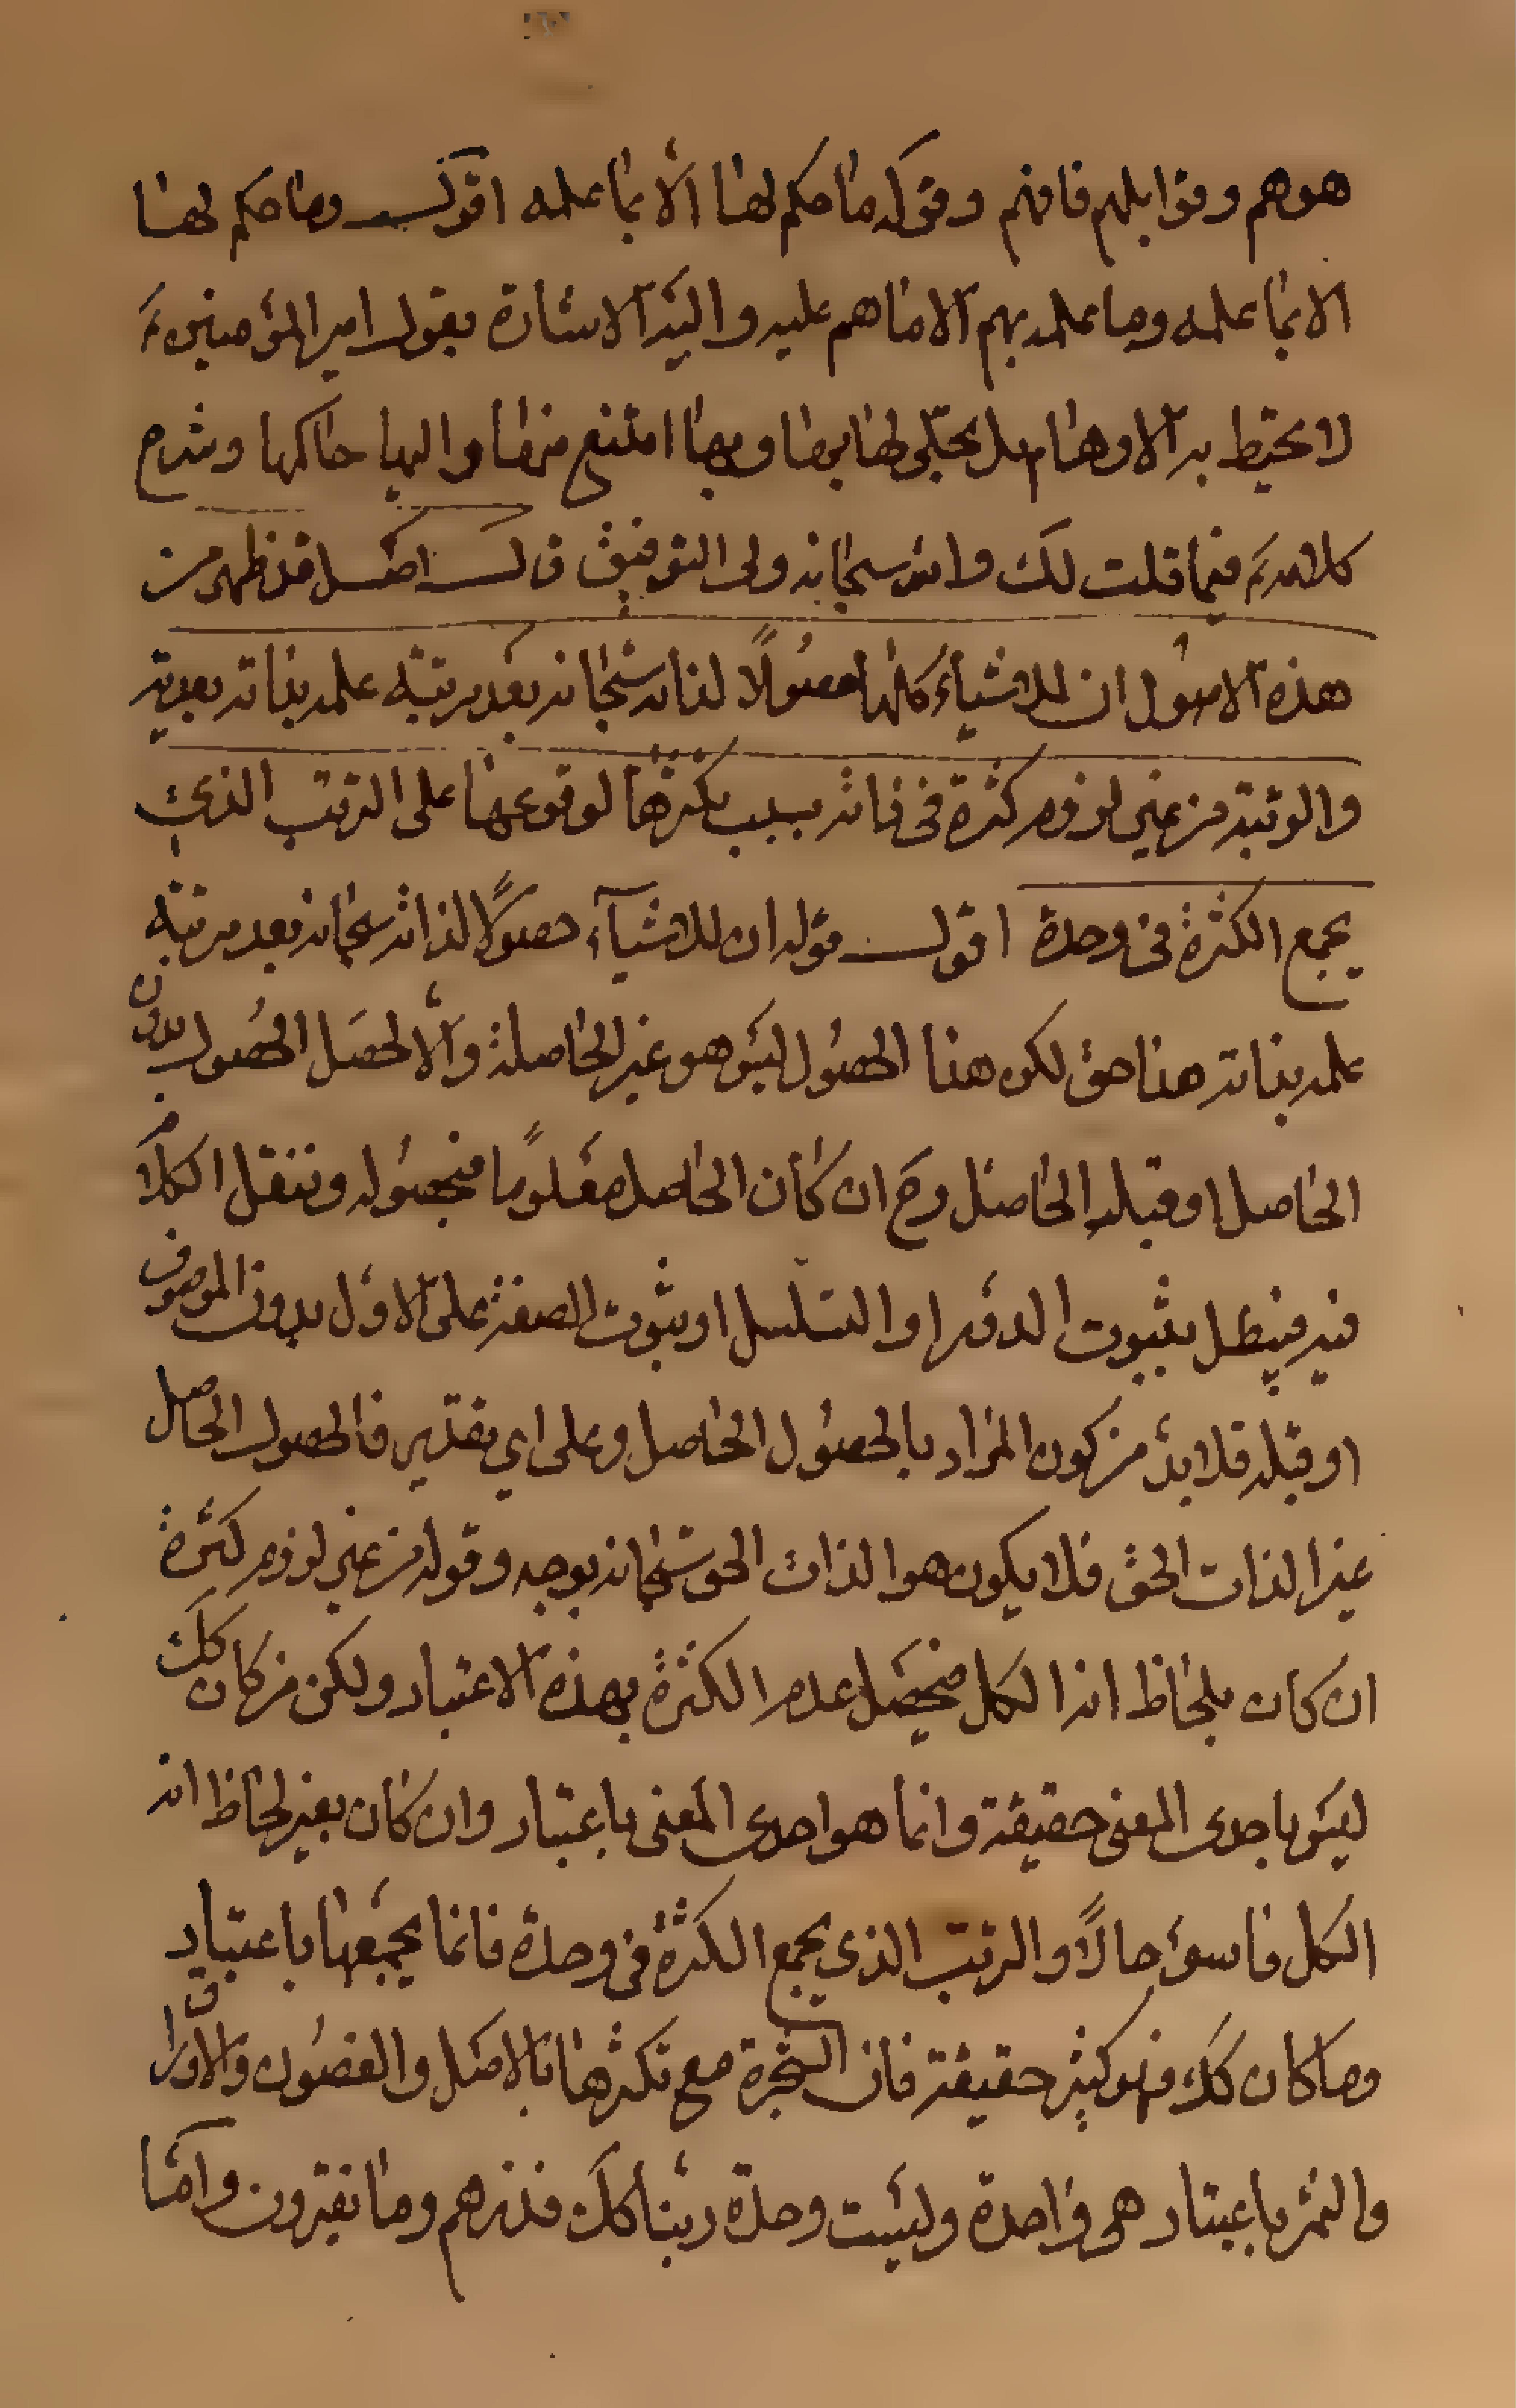 هو هم وقوابلهم فافهم وقوله ما حكم لها الا بما علمه اقول وما حكم لها
الا بما علمه وما علمه بهم الا ما هم عليه واليه الاشارة بقول امير المؤمنين ع
لا تحيط به الاوهام بل تجلى لها بها وبها امتنع منها واليها حاكمها وشرح
كلامه ع فيما قلت لك والله سبحانه ولى التوفيق قال اصل قد ظهر من
هذه الاصول ان للاشياء كلها حصولا لذاته سبحانه بعد مرتبة علمه بذاته بعدية
بالرتبة من غير لزوم كثرة فى ذاته بسبب تكثرها لوقوعها على الترتيب الذى
يجمع الكثرة فى وحدة اقول قوله ان للاشياء حصولا لذاته سبحانه بعد مرتبة
علمه بذاته هذا حق لكن هذا الحصول ليس هو غير الحاصلة والا لحصل الحصول بدون
الحاصل او قبله الحاصل وح ان كان الحاصل معلوما فبحصوله وننقل الكلام
فيه فيبطل بثبوت الدور او التسلسل او بثبوت الصفة على الاول بدون الموصوف
او قبله فلا بد من كون المراد بالحصول الحاصل وعلى اي تقدير فالحصول الحاصل
غير الذات الحق فلا يكون هو الذات الحق سبحانه بوجه وقوله من غير لزوم كثرة
ان كان بلحاظ انه الكل فيحصل عدم الكثرة بهذه الاعتبار ولكن من كان كك
ليس باحدى المعنى حقيقة وانما هو احدى المعنى باعتبار وان كان بغير لحاظ انه
الكل فاسوء حالا والترتيب الذي يجمع الكثرة فى وحدة فانما يجمعها باعتبار
وما كان كك فهو كثير حقيقة فان الشجرة مع تكثرها بالاصل والغصون والاوراق
والثمر باعتبار هى واحدة وليست وحدة ربنا كك فذرهم وما يفترون واما